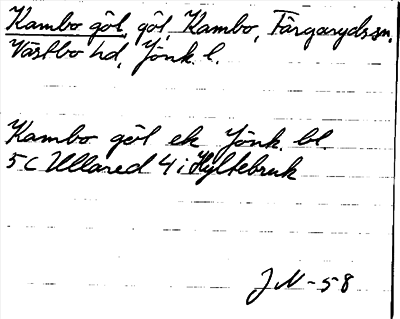 Kambo göl, göl, Kambo, Färgaryds sn,
Västbo hd, Jönk. l.
Kambo göl ek Jönk. bl.
5 C Ullared 4 i Hyltebruk
JN-58